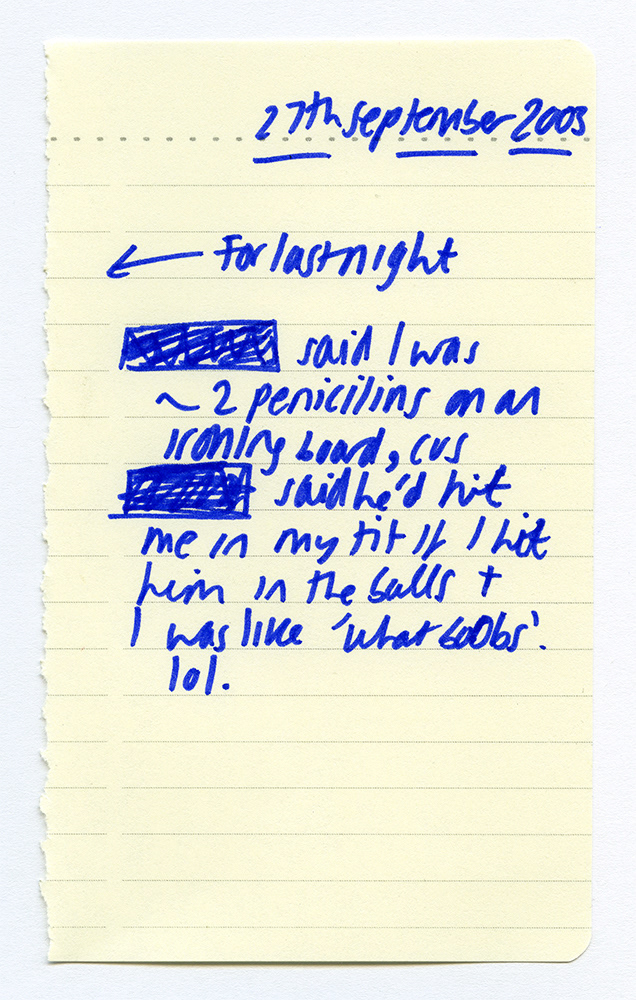 27th September 2003
← For last night
said I was
~ 2 penicilins on an
ironing board, cus
said he'd hit
me in my tit if I hit
him in the balls +
I was like 'what bo0bs'.
lol.